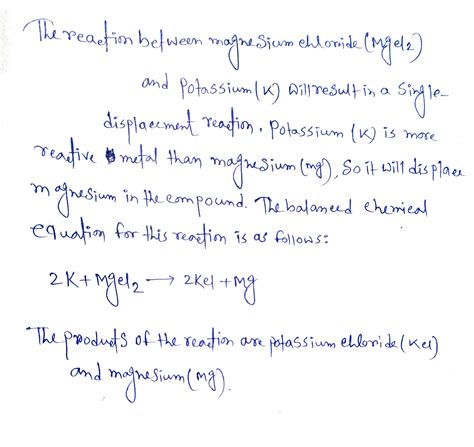 The reaction between magnesium chloride (MgCl2)
and potassium (K) will result in a single-
displacement reaction. Potassium (K) is more
reactive metal than magnesium (mg), So it will displace
magnesium in the compound. The balanced chemical
equation for this reaction is as follows:
2K + MgCl2 → 2KCl + Mg
The products of the reaction are potassium chloride (KCl)
and magnesium (Mg).